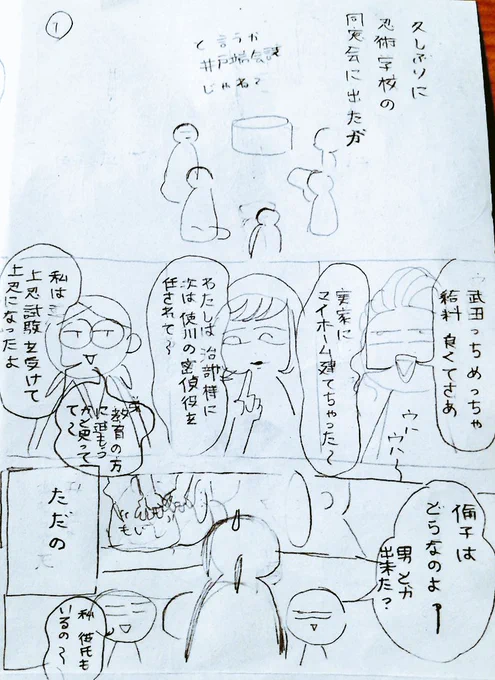 1
久しぶりに
忍術学校の
同窓会に出たが
と言うか
井戸端会議
じゃね？
武田っちめっちゃ
給料 良くてさあ
ウハウハ〜
実家に
マイホーム建てちゃった〜
わたしは
次は徳川の密偵役を
任されて〜
私は
上忍試験を受けて
上忍になったよ
教育の方
に進もう
かと思って
て〜
倫子は
どうなのよー
男とか
出来た？
ただの
私 彼氏も
いるの〜